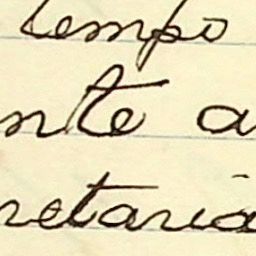 tempo
nte a
retaria